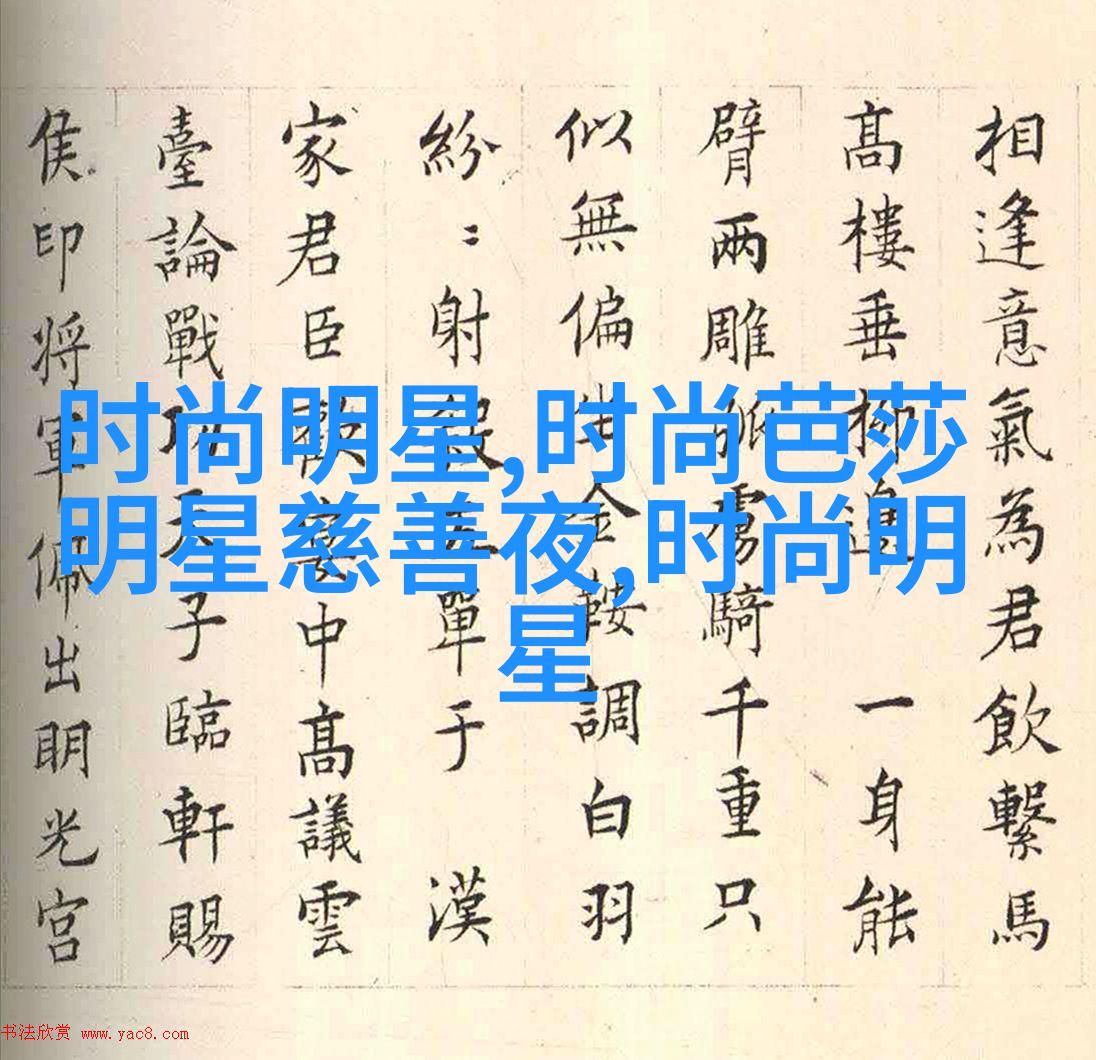 相逢意氣為君飲繫馬
髙樓垂柳邊 一身能
臂兩雕弧虜騎千重只
似無偏坐金鞍調白羽
紛〻射殺五單于 漢
家君臣歡宴中髙議雲
臺論戰功天子臨軒賜
侯印将軍佩出明光宫
时尚明星,时尚芭莎
明星慈善夜,时尚明
星
书法欣赏 www.yac8.com